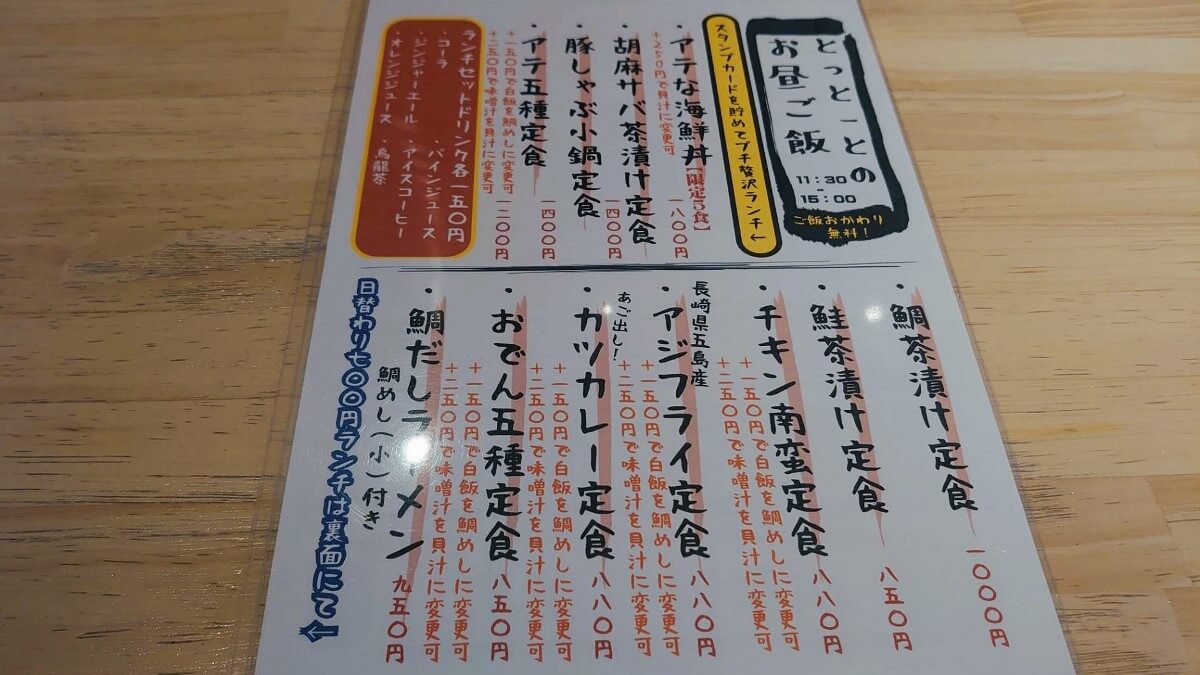 とっと－との
お昼ご飯
11:30
~
15:00
ご飯おかわり
無料!
スタンプカードを貯めてプチ贅沢ランチ←
・アテな海鮮丼【限定5食】 一八〇〇円
+250円で貝汁に変更可
・胡麻サバ茶漬け定食 一四〇〇円
・豚しゃぶ小鍋定食 一四〇〇円
・アテ五種定食 一二〇〇円
+一五〇円で白飯を鯛めしに変更可
+二五〇円で味噌汁を貝汁に変更可
ランチセットドリンク各一五〇円
・コーラ ・パインジュース
・ジンジャーエール ・アイスコーヒー
・オレンジジュース ・烏龍茶
・鯛茶漬け定食 一〇〇〇円
・鮭茶漬け定食 八五〇円
・チキン南蛮定食 八八〇円
+一五〇円で白飯を鯛めしに変更可
+二五〇円で味噌汁を貝汁に変更可
長崎県五島産
・アジフライ定食 八八〇円
+一五〇円で白飯を鯛めしに変更可
+二五〇円で味噌汁を貝汁に変更可
あご出し!
・カツカレー定食 八八〇円
+一五〇円で白飯を鯛めしに変更可
+二五〇円で味噌汁を貝汁に変更可
・おでん五種定食 八五〇円
+一五〇円で白飯を鯛めしに変更可
+二五〇円で味噌汁を貝汁に変更可
・鯛だしラーメン 九五〇円
鯛めし(小)付き
日替わり七〇〇円ランチは裏面にて←